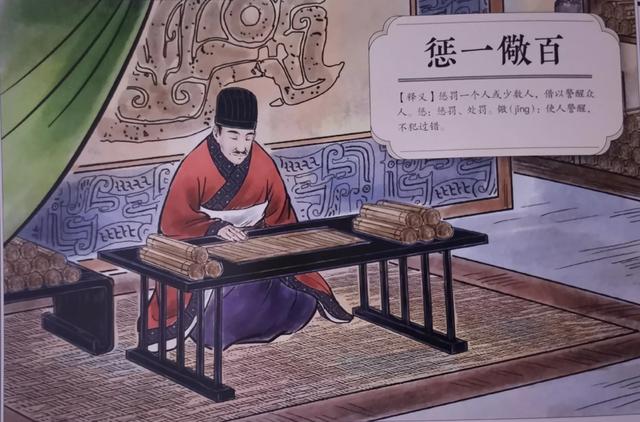 惩一儆百
【释义】惩罚一个人或少数人，借以警醒众
人。惩：惩罚、处罚。儆（jǐng）：使人警醒，
不犯过错。